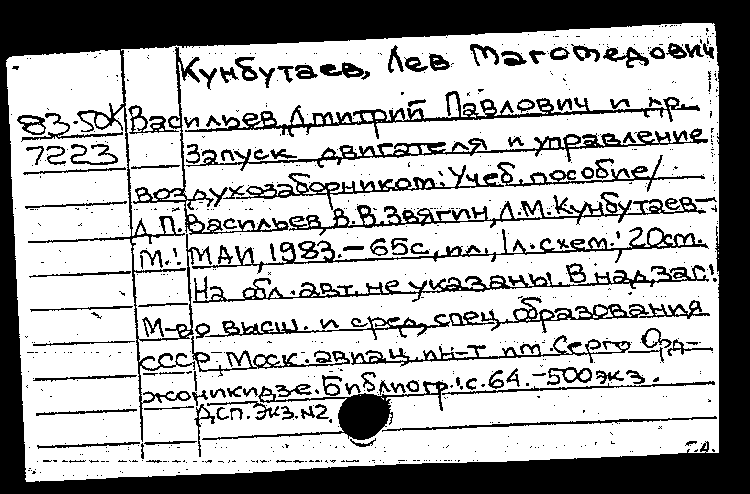 Кунбутаев, Лев Магомедович
83-50К Васильев, Дмитрий Павлович и др.
7223 Запуск двигателя и управление
воздухозаборником: Учеб. пособие/
Д.П. Васильев, В.В. Звягин, Л.М. Кунбутаев-
М.: МАИ, 1983.-65с, ил., 1л. схем.; 20см.
На обл. авт. не указаны. В надзаг:
М-во высш. и сред, спец. образования
СССР, Моск. авиац. ин-т им. Серго Орд-
жоникидзе. Библиогр.: с. 64.-500экз.
ДСП. Экз. N2.